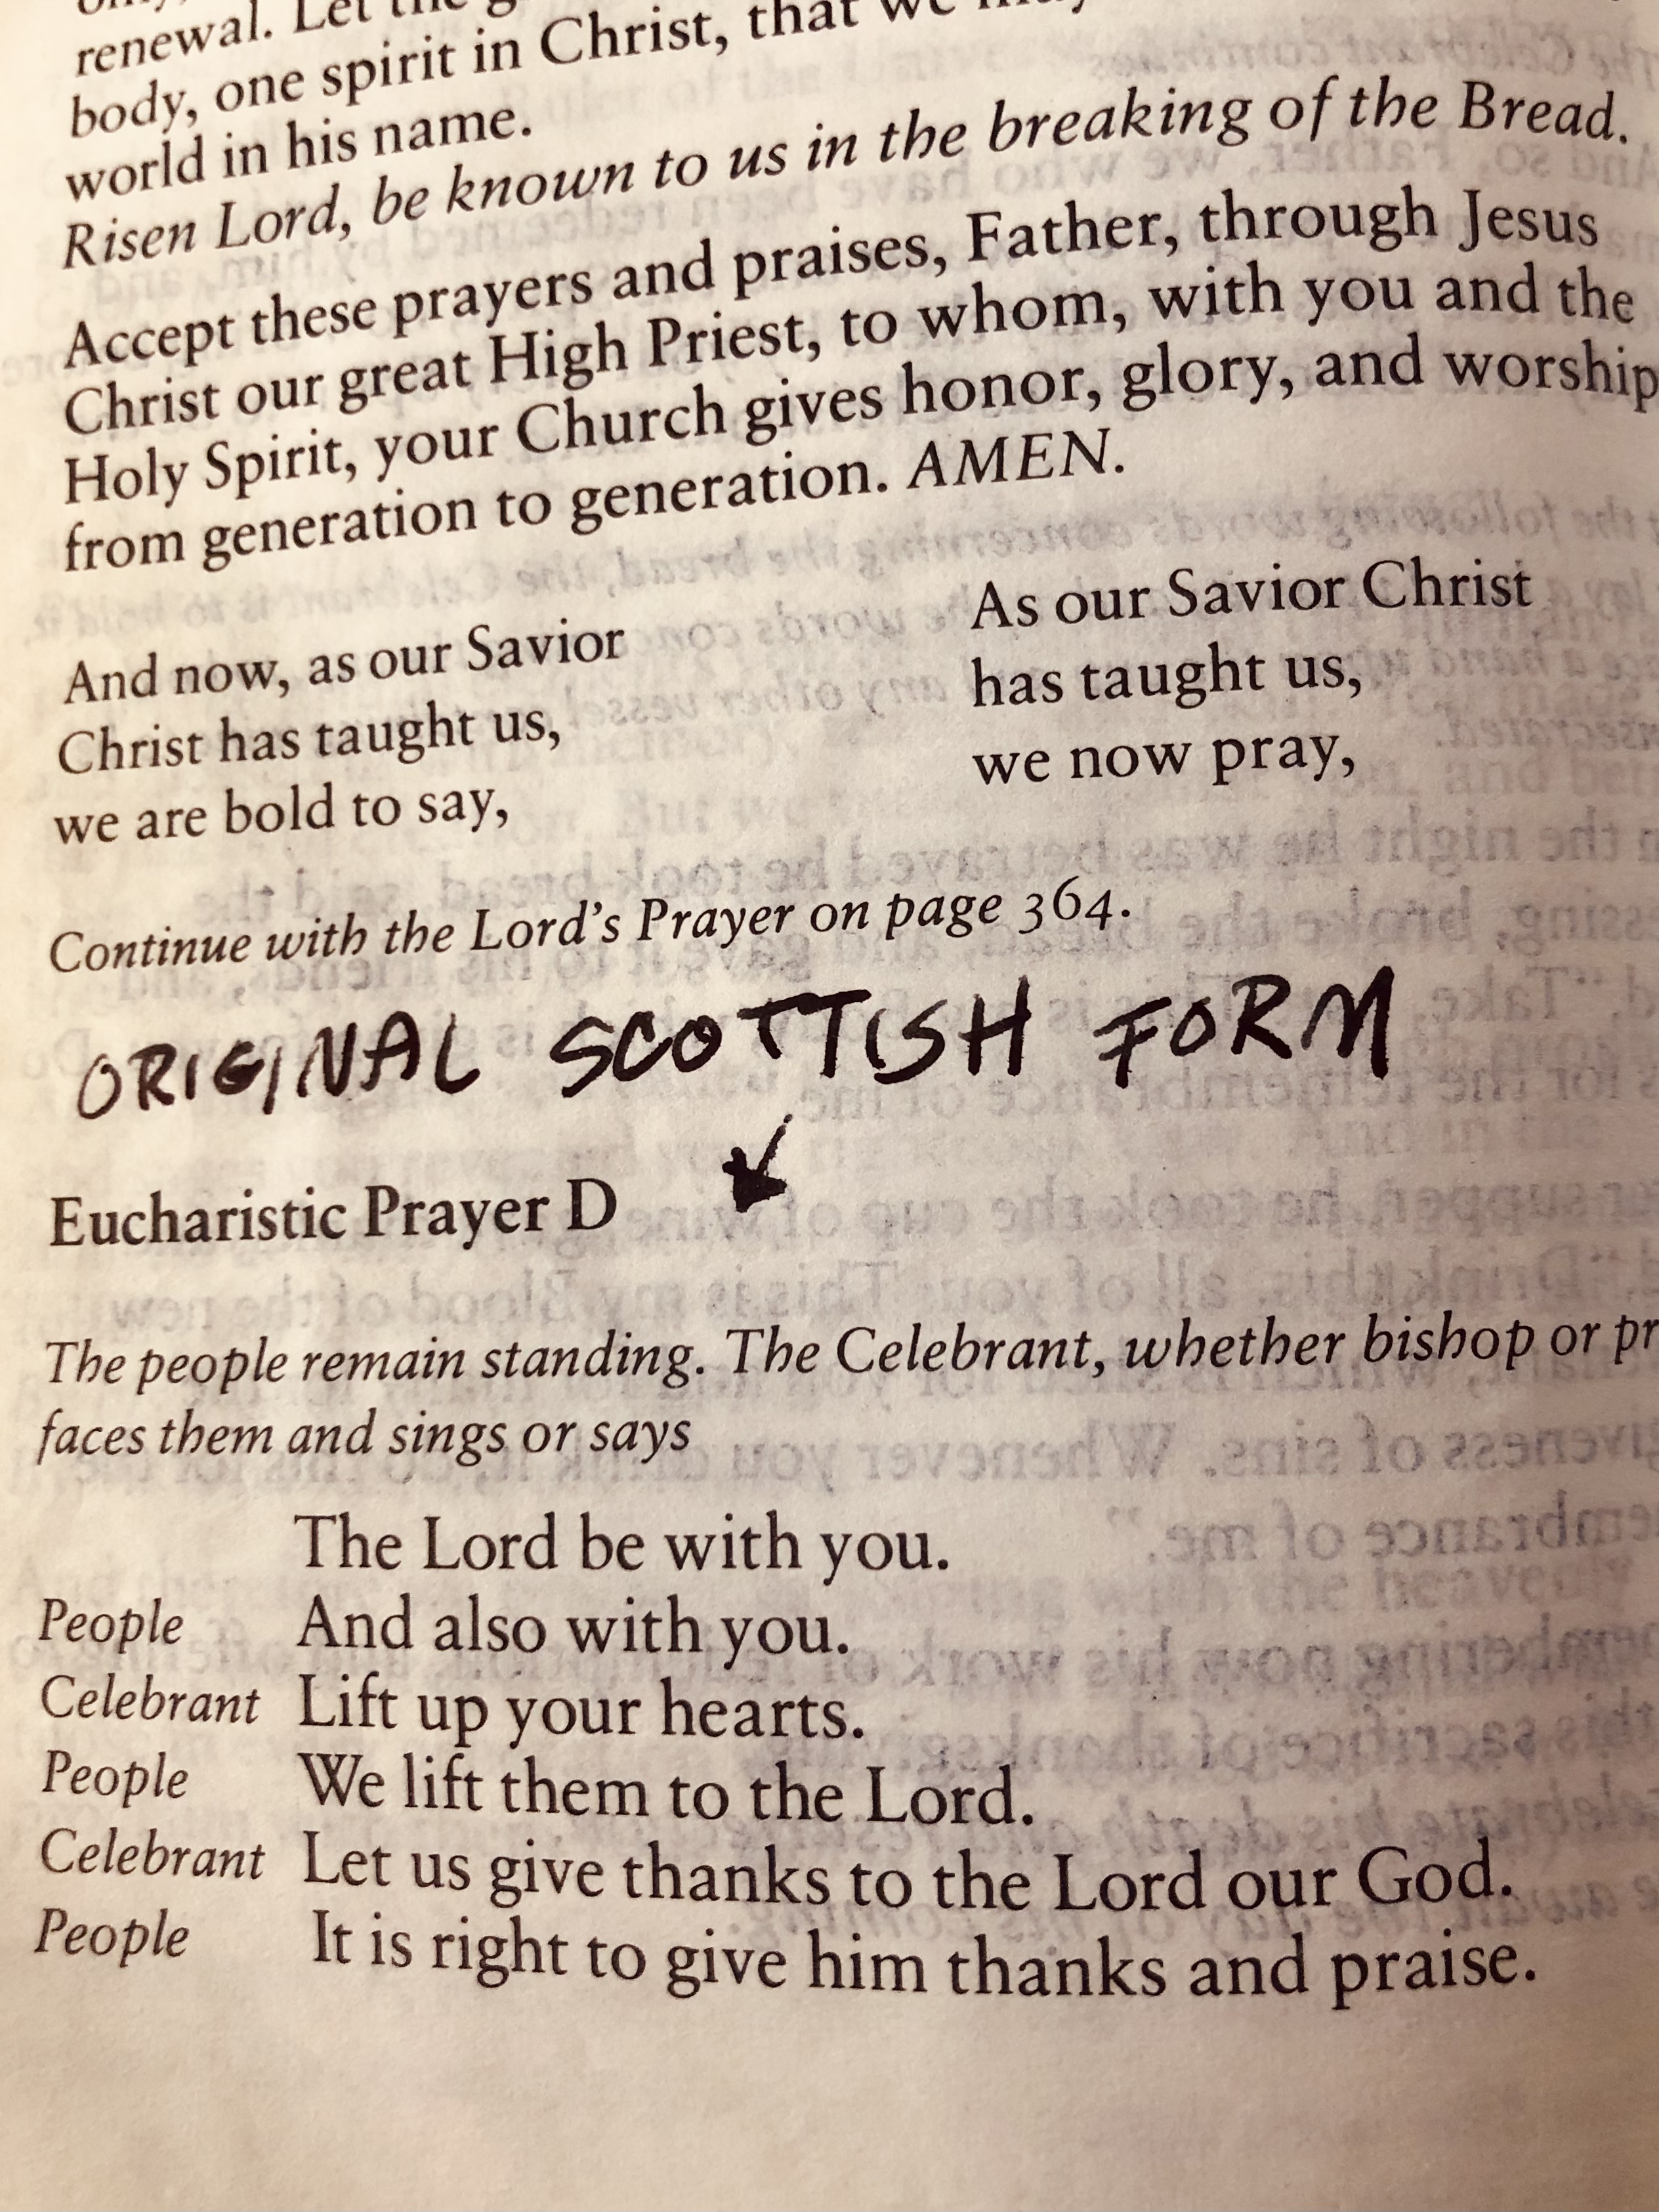 renewal. Let the
body, one spirit in Christ, that we may
world in his name.
Risen Lord, be known to us in the breaking of the Bread.
Accept these prayers and praises, Father, through Jesus
Christ our great High Priest, to whom, with you and the
Holy Spirit, your Church gives honor, glory, and worship
from generation to generation. AMEN.
And now, as our Savior
Christ has taught us,
we are bold to say,
As our Savior Christ
has taught us,
we now pray,
Continue with the Lord's Prayer on page 364.
ORIGINAL SCOTTISH FORM
Eucharistic Prayer D
The people remain standing. The Celebrant, whether bishop or
faces them and sings or says
The Lord be with you.
People And also with you.
Celebrant Lift up your hearts.
People We lift them to the Lord.
Celebrant Let us give thanks to the Lord our God.
People It is right to give him thanks and praise.